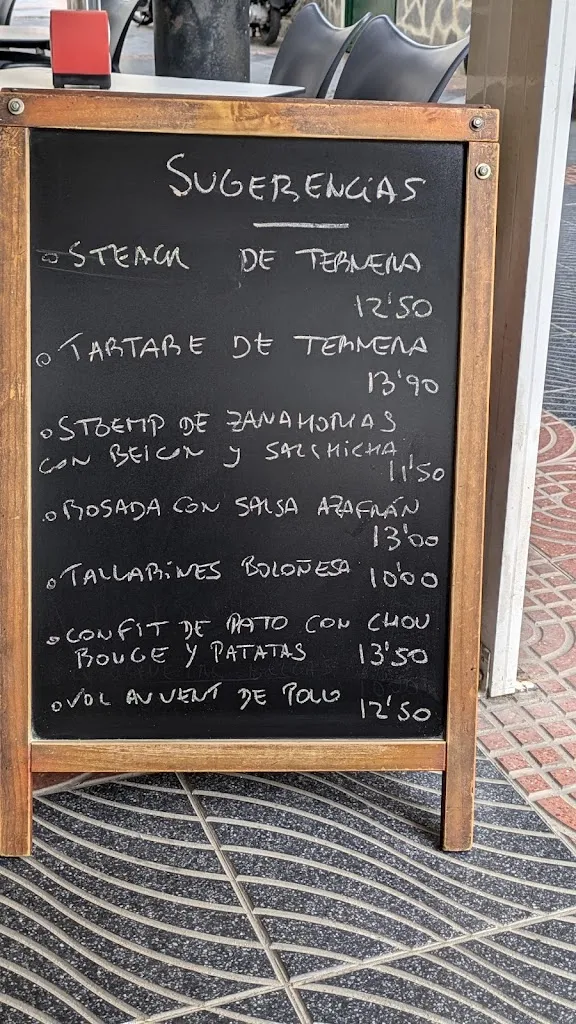 SUGERENCIAS
o STEACK DE TERNERA
12'50
o TARTARE DE TERNERA
13'90
o STOEMP DE ZANAHORIAS
CON BEICON Y SALCHICHA
11'50
o ROSADA CON SALSA AZAFRÁN
13'00
o TALLARINES BOLOÑESA 10'00
o CONFIT DE PATO CON CHOU
ROUGE Y PATATAS 13'50
o VOL AUVENT DE POLLO
12'50